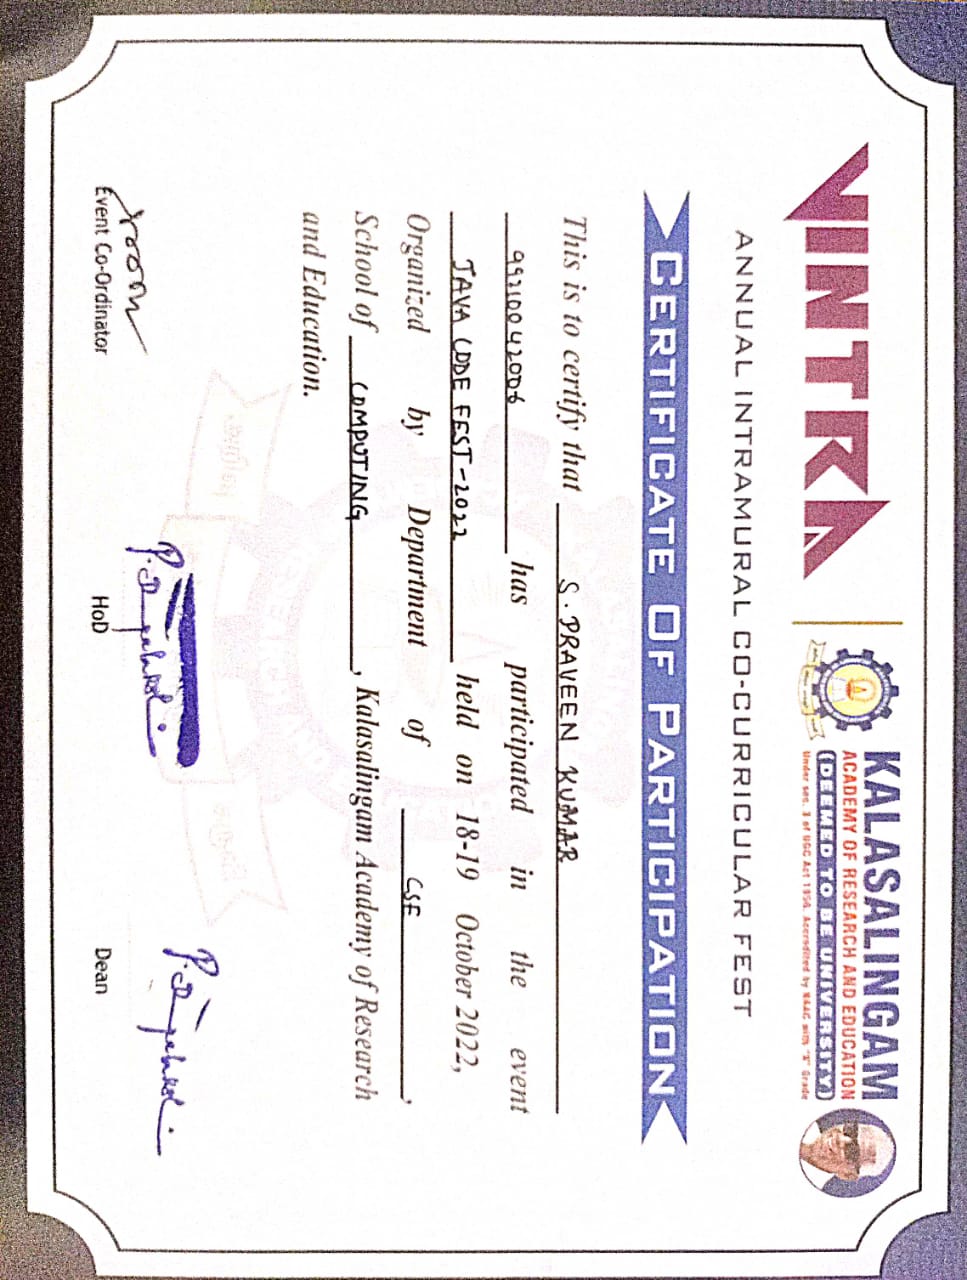 VINTRA
KALASALINGAM
ACADEMY OF RESEARCH AND EDUCATION
(DEEMED TO BE UNIVERSITY)
Under sec. 3 of UGC Act 1956. Accredited by NAAC with "A" Grade
ANNUAL INTRAMURAL CO-CURRICULAR FEST
CERTIFICATE OF PARTICIPATION
This is to certify that S. PRAVEEN KUMAR
99210042006 has participated in the event
JAVA CODE FEST-2022 held on 18-19 October 2022,
Organized by Department of CSE,
School of COMPUTING, Kalasalingam Academy of Research
and Education.
Event Co-Ordinator
HoD
Dean